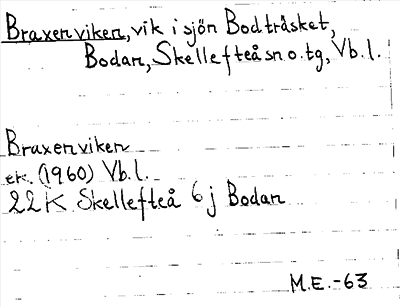 Braxenviken, vik i sjön Bodträsket,
Bodan, Skellefteå sn o. tg, Vb. l.
Braxenviken
ek. (1960) Vb. l.
22K Skellefteå 6 j Bodan
M.E. -63